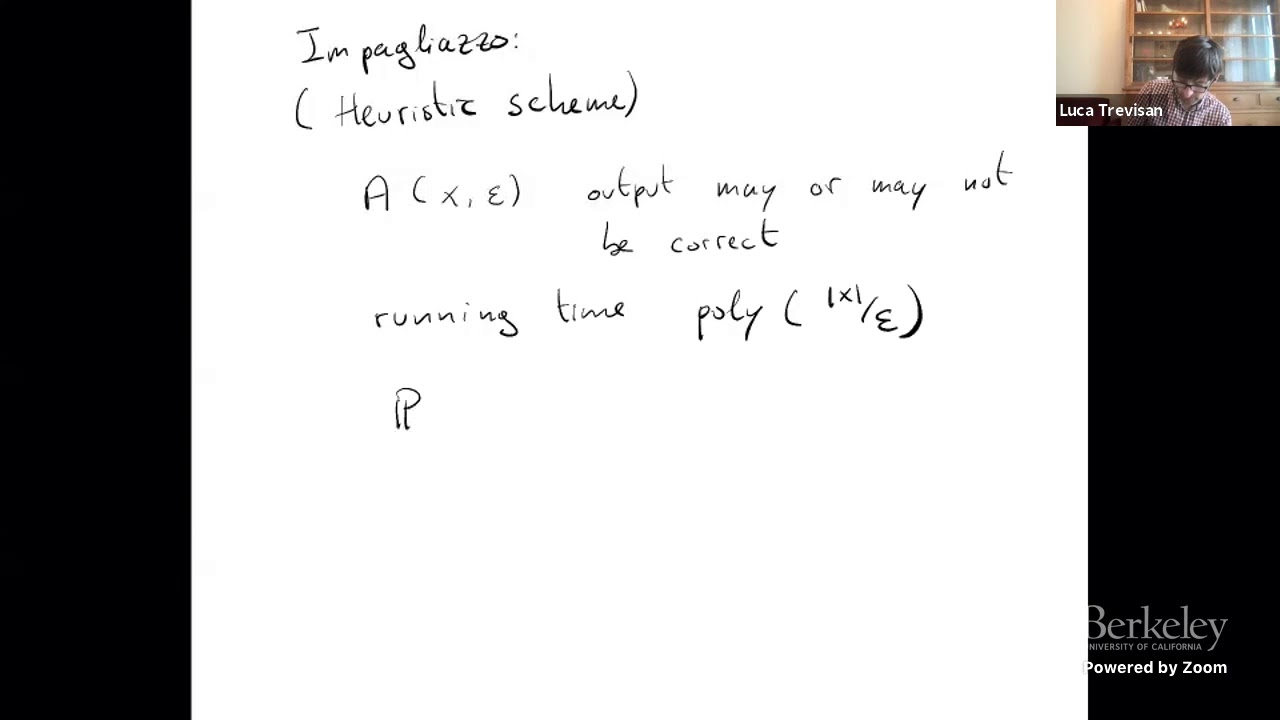 Impagliazzo:
(Heuristic scheme)
A (x, ε) output may or may not
be correct
running time poly (|x|/ε)
ℙ
Luca Trevisan
Berkeley
UNIVERSITY OF CALIFORNIA
Powered by Zoom